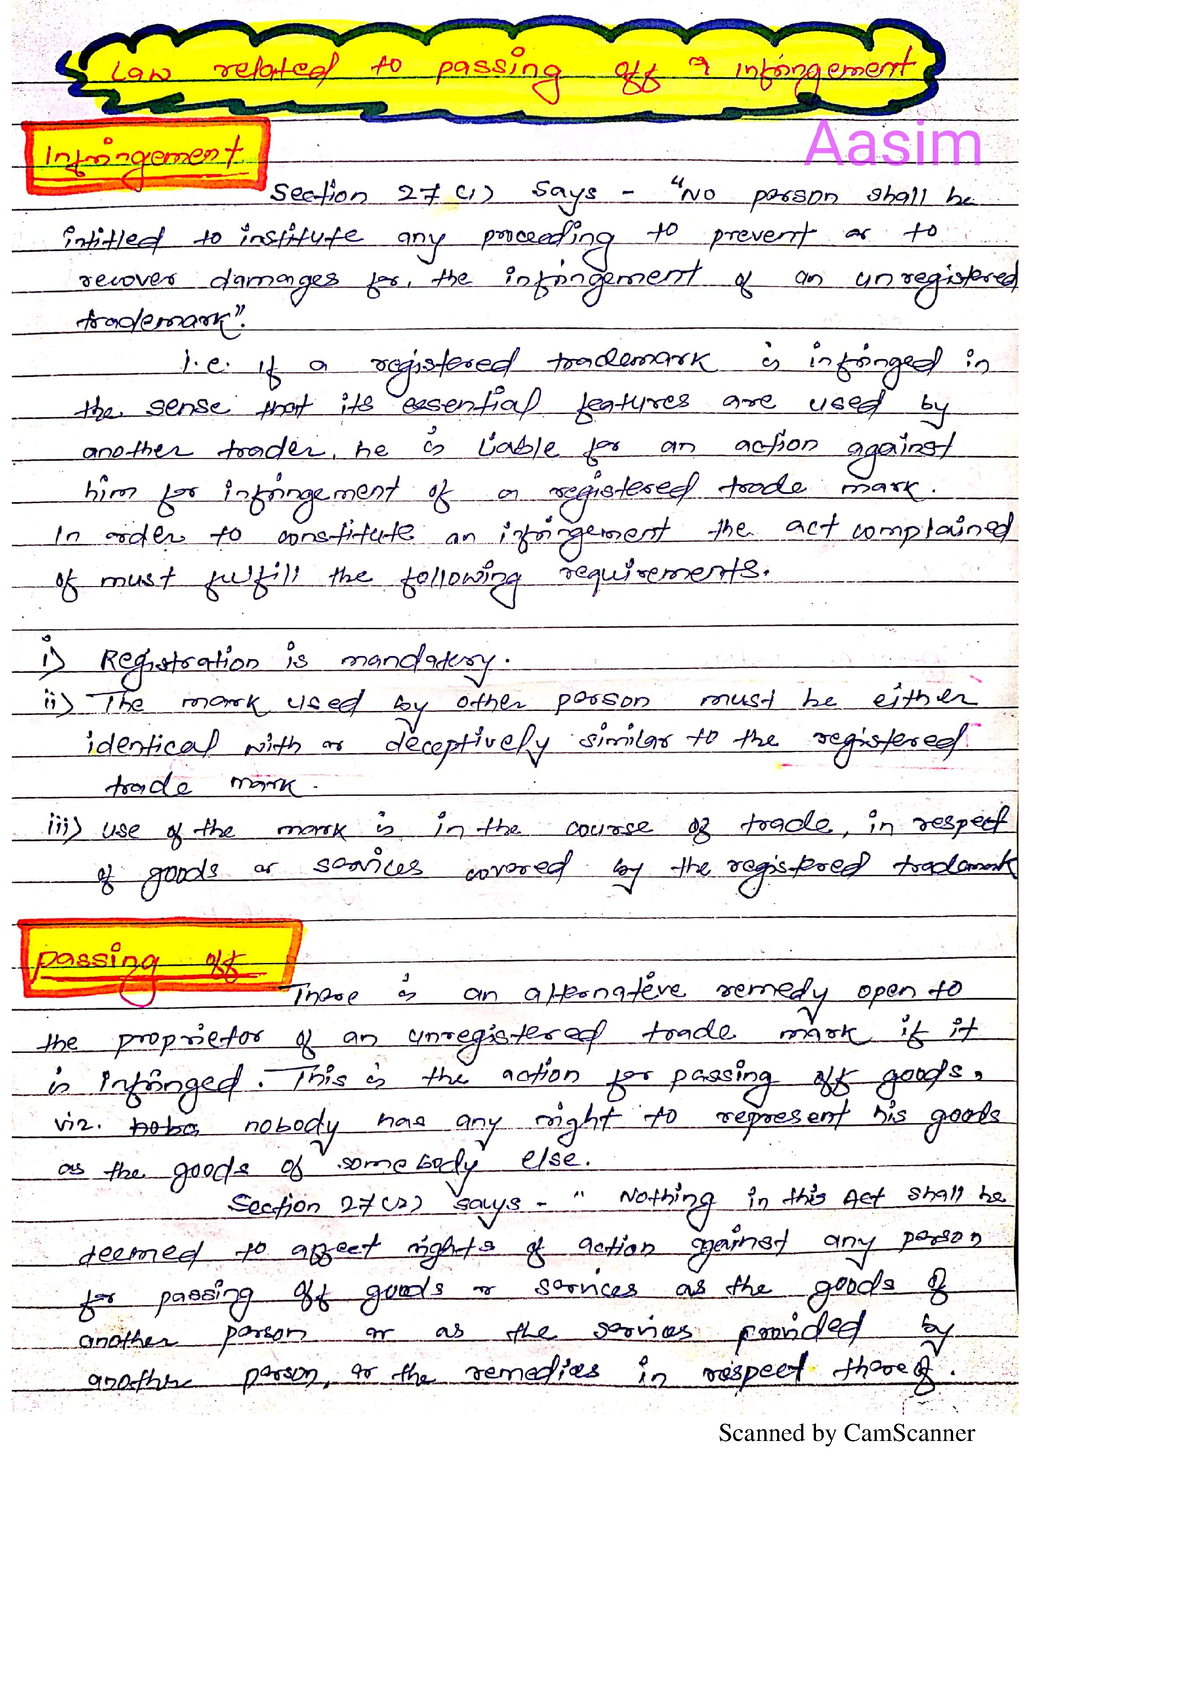 Law related to passing off & infringement
Aasim
Infringement
Section 27(1) says - "No person shall be
intitled to institute any proceeding to prevent or to
recover damages for, the infringement of an unregistered
trademark".
i.e. if a registered trademark is infringed in
the sense that its essential features are used by
another trader, he is liable for an action against
him for infringement of a registered trade mark.
In order to constitute an infringement the act complained
of must fulfill the following requirements.
i) Registration is mandatory.
ii) The mark used by other person must be either
identical with or deceptively similar to the registered
trade mark.
iii) use of the mark is in the course of trade, in respect
of goods or services covered by the registered trademark
passing off
There is an alternative remedy open to
the proprietor of an unregistered trade mark if it
is infringed. This is the action for passing off goods,
viz. nobody has any right to represent his goods
as the goods of somebody else.
Section 27(2) says - " Nothing in this Act shall be
deemed to affect rights of action against any person
for passing off goods or services as the goods of
another person or as the services provided by
another person, or the remedies in respect thereof.
Scanned by CamScanner